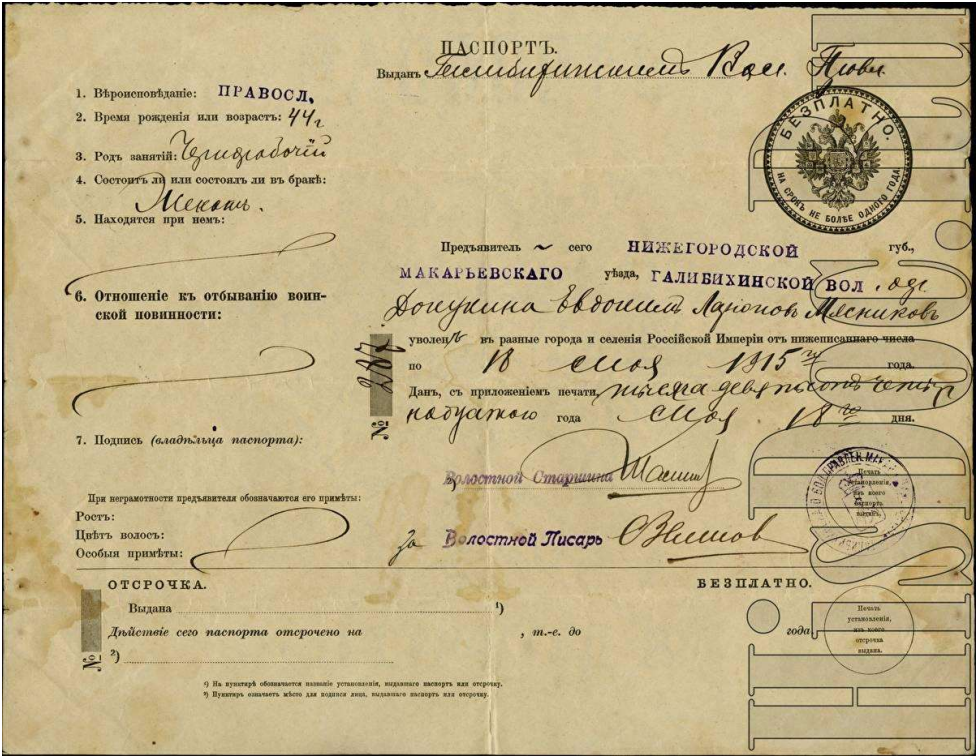 ПАСПОРТЪ.
Выданъ Галибихинскимъ Вол. Правл.
1. Вѣроисповѣданіе: ПРАВОСЛ.
2. Время рожденія или возрастъ: 44 г
3. Родъ занятій: Чернорабочій
4. Состоитъ ли или состоялъ ли въ бракѣ:
Женатъ.
5. Находятся при немъ:
6. Отношеніе къ отбыванію воин-
ской повинности:
7. Подпись (владѣльца паспорта):
При неграмотности предъявителя обозначаются его примѣты:
Ростъ:
Цвѣтъ волосъ:
Особыя примѣты:
БЕЗПЛАТНО.
НА СРОКЪ НЕ БОЛѢЕ ОДНОГО ГОДА
Предъявитель сего НИЖЕГОРОДСКОЙ губ.,
МАКАРЬЕВСКАГО уѣзда, ГАЛИБИХИНСКОЙ ВОЛ. дер.
Докукина Евдокимъ Ларіоновъ Мясниковъ
уволенъ въ разные города и селенія Россійской Имперіи отъ нижеписаннаго числа
по 18 мая 1915 го года.
Данъ, съ приложеніемъ печати, тысяча девятьсотъ четыр
надцатого года мая 18 го дня.
№ 287
Волостной Старшина
за Волостной Писарь
Печать
установленія,
изъ коего
паспортъ
выданъ.
ОТСРОЧКА. БЕЗПЛАТНО.
Выдана ¹)
Дѣйствіе сего паспорта отсрочено на , т.-е. до года.
№ ²)
Печать
установленія,
изъ коего
отсрочка
выдана.
¹) На пунктирѣ обозначается названіе установленія, выдавшаго паспортъ или отсрочку.
²) Пунктиръ означаетъ мѣсто для подписи лица, выдавшаго паспортъ или отсрочку.